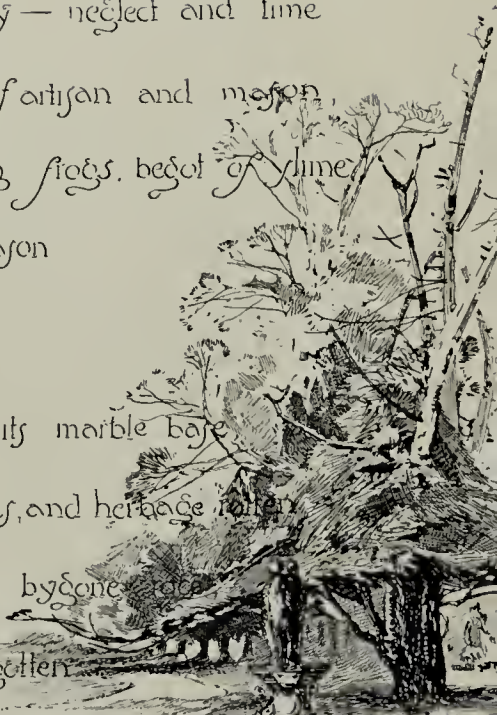 y — neglect and time
f artisan and mason,
g frogs, begot of slime,
ason
its marble base,
s, and herbage rotten
bygone race
gotten